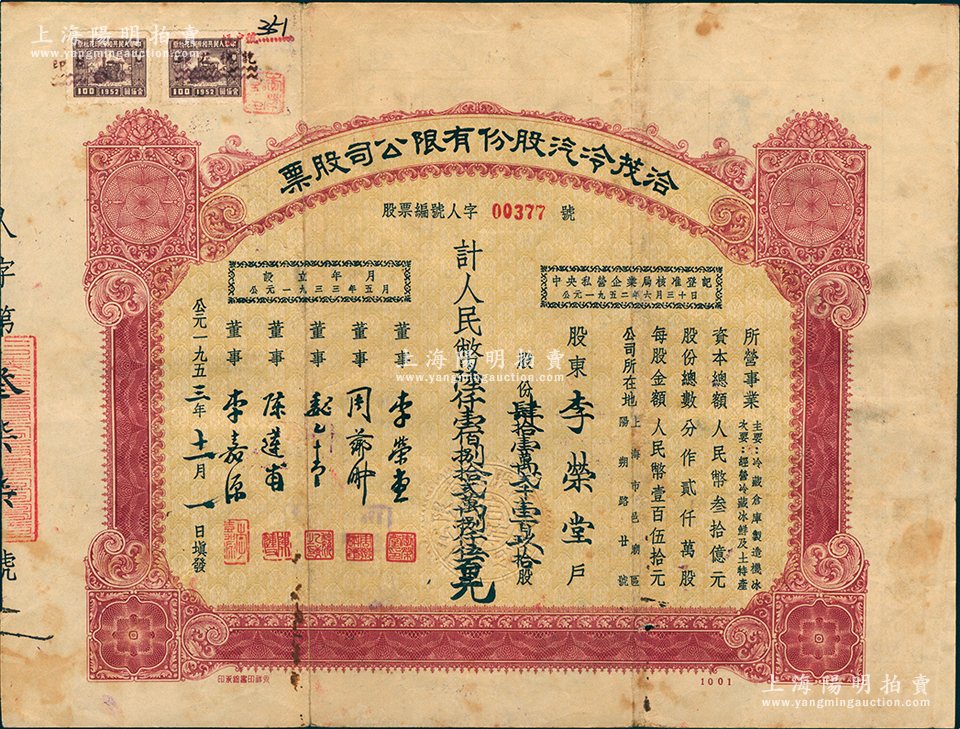 上海陽明拍賣
www.yangmingauction.com
361
中華人民共和國印花稅票
100 1952
100 1952
洽茂冷汽股份有限公司股票
股票編號人字 00377 號
中央私營企業局核准登記
公元一九五二年六月三十日
設立年月
公元一九三三年五月
所營事業 主要：冷藏倉庫製造機冰
次要：經營冷藏冰鮮及土特產
資本總額 人民幣叁拾億元
股份總數 分作貳仟萬股
每股金額 人民幣壹百伍拾元
公司所在地 上海市邑廟區
陽朔路廿號
股東 李榮堂 戶
股份肆拾壹萬貳千壹百玖拾股
計人民幣陸仟壹佰捌拾貳萬捌仟伍百元
董事 李榮堂
董事 周
董事
董事 陈
董事 李嘉源
公元一九五三年十一月一日塡發
人字第叁柒柒號
1001
上海陽明拍賣
www.yangmingauction.com
上海陽明拍賣
www.yangmingauction.com